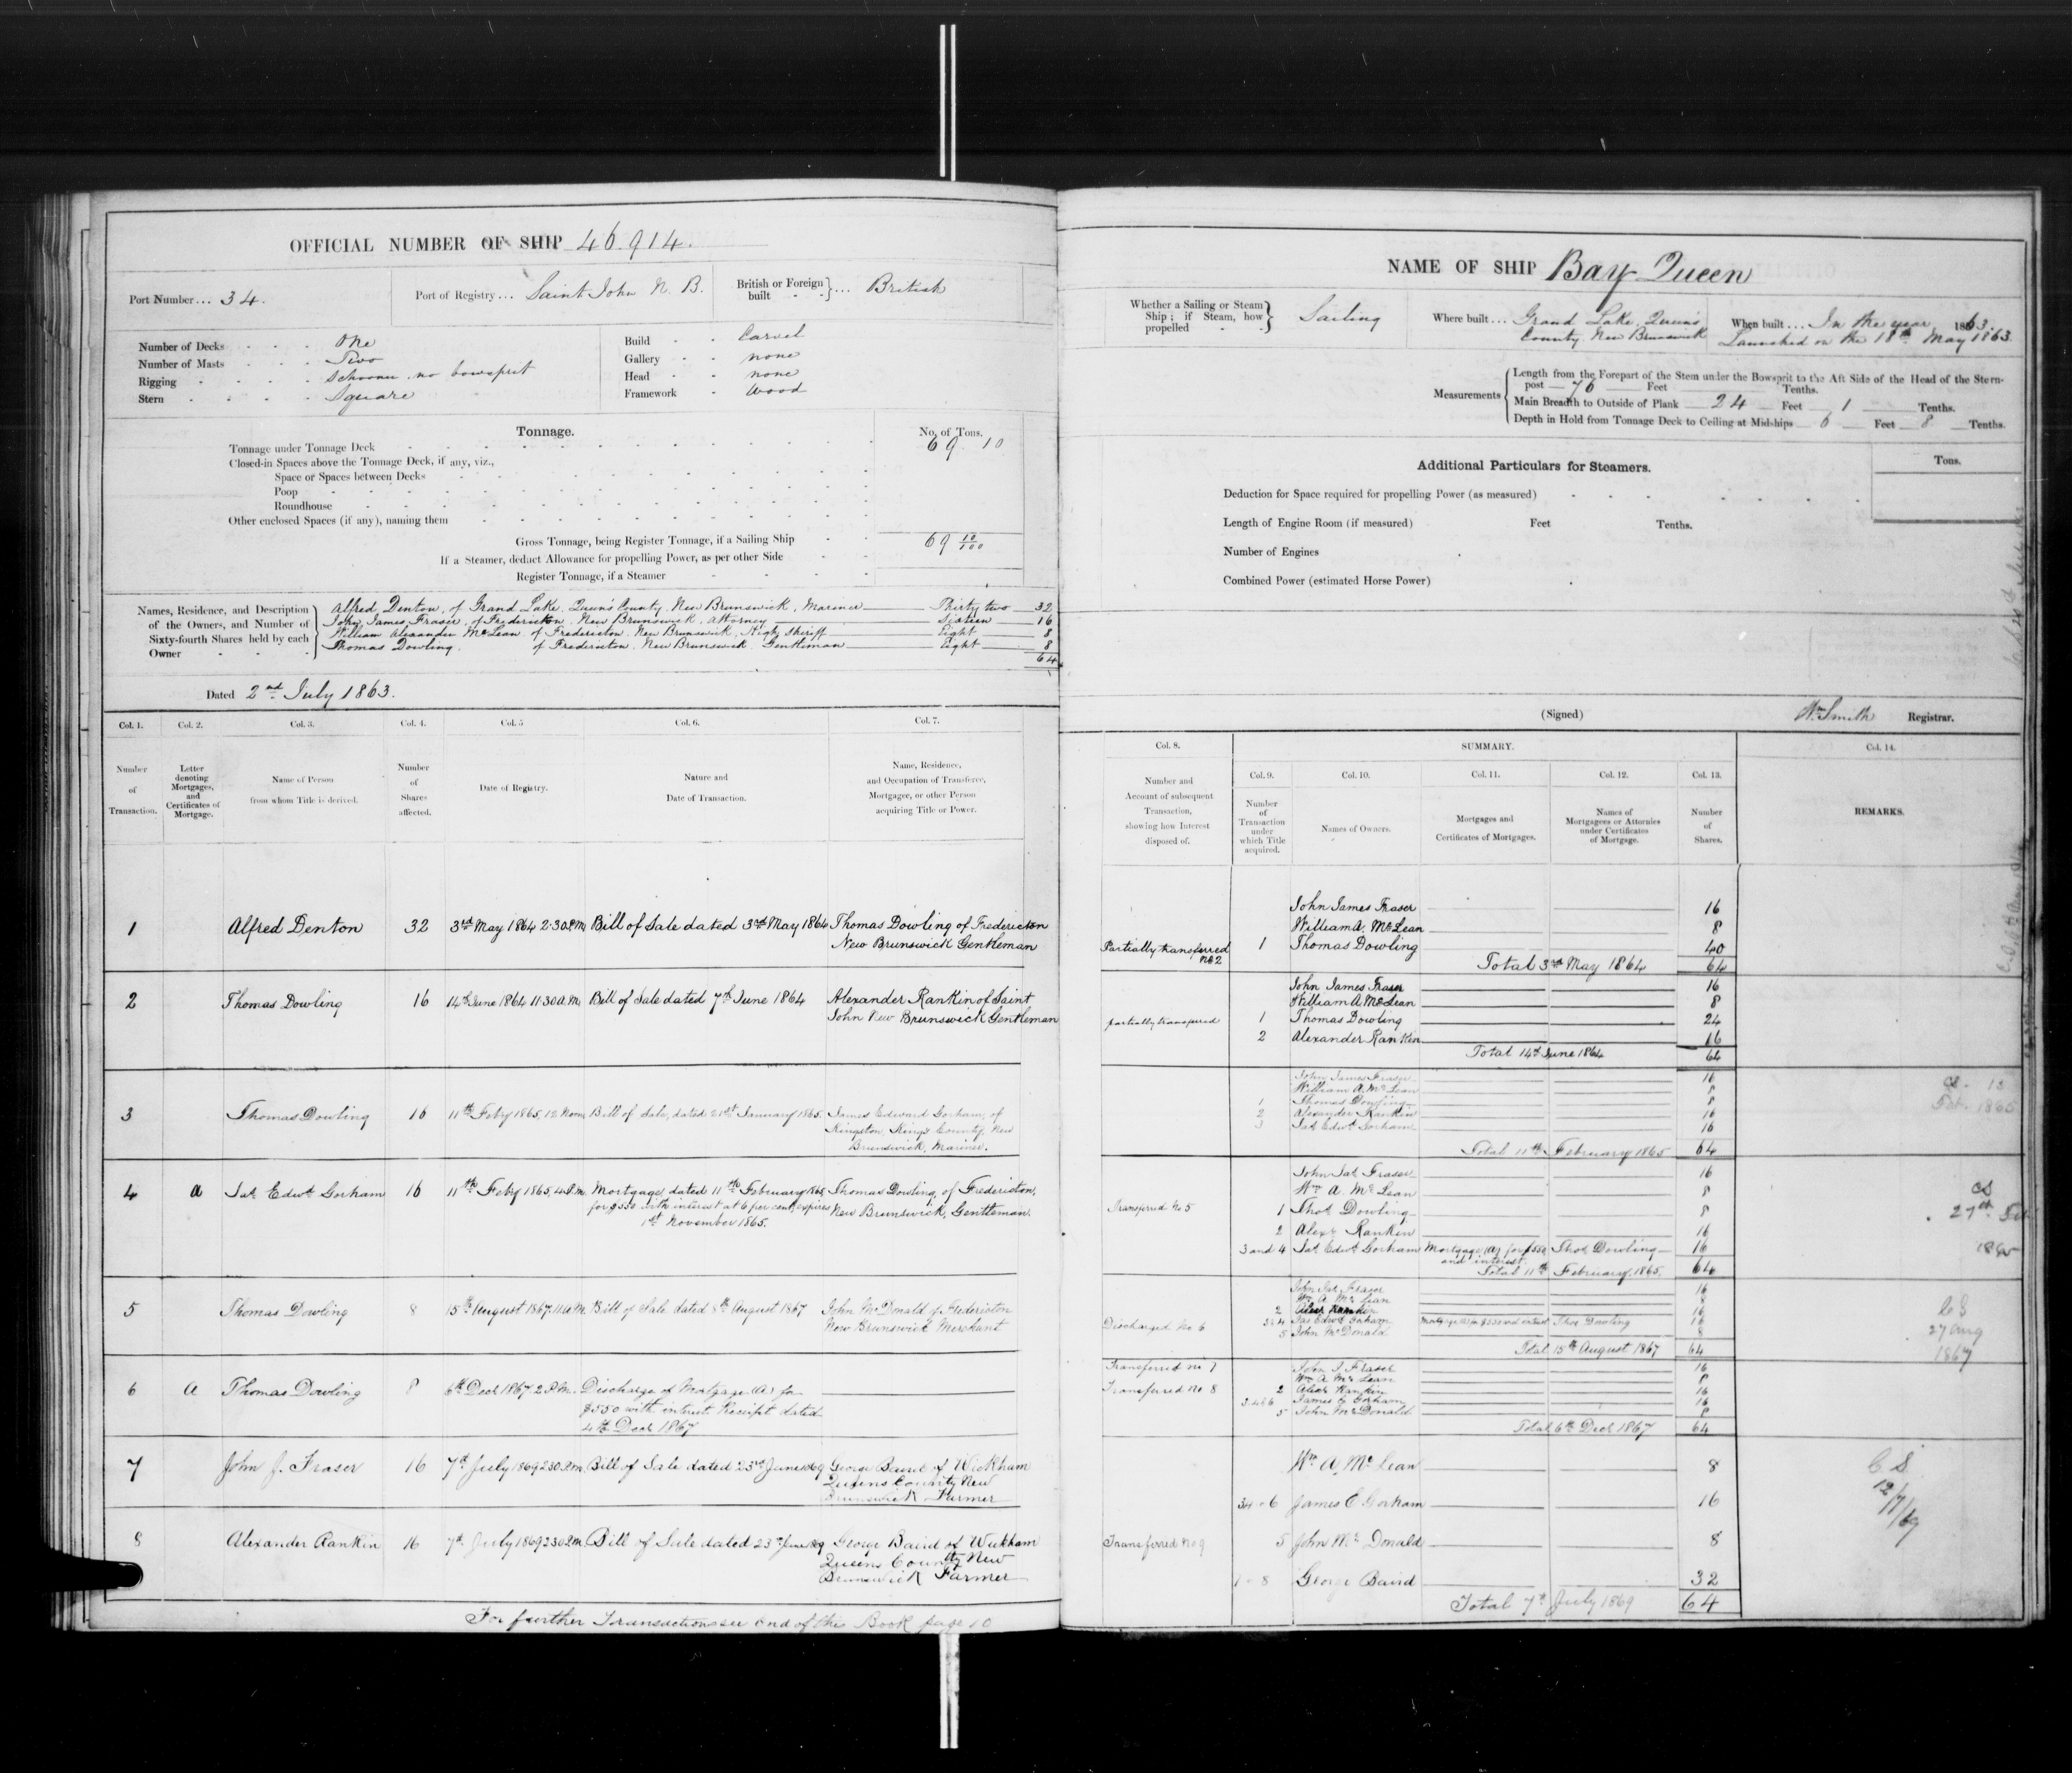 OFFICIAL NUMBER OF SHIP 46.914.
Port Number... 34.
Port of Registry... Saint John N. B.
British or Foreign built } ... British
Number of Decks One
Number of Masts Two
Rigging Schooner, no bowsprit
Stern Square
Build Carvel
Gallery none
Head none
Framework Wood
Tonnage.
No. of Tons.
Tonnage under Tonnage Deck 69 . 10
Closed-in Spaces above the Tonnage Deck, if any, viz.,
Space or Spaces between Decks
Poop
Roundhouse
Other enclosed Spaces (if any), naming them
Gross Tonnage, being Register Tonnage, if a Sailing Ship 69 10/100
If a Steamer, deduct Allowance for propelling Power, as per other Side
Register Tonnage, if a Steamer
Names, Residence, and Description of the Owners, and Number of Sixty-fourth Shares held by each Owner
Alfred Denton, of Grand Lake, Queen's County, New Brunswick, Mariner Thirty two 32
John James Fraser, of Fredericton, New Brunswick, Attorney Sixteen 16
William Alexander McLean of Fredericton, New Brunswick, High Sheriff Eight 8
Thomas Dowling, of Fredericton, New Brunswick, Gentleman Eight 8
64
Dated 2nd July 1863.
Col. 1. Col. 2. Col. 3. Col. 4. Col. 5 Col. 6. Col. 7.
Number of Transaction.
Letter denoting Mortgages, and Certificates of Mortgage.
Name of Person from whom Title is derived.
Number of Shares affected.
Date of Registry.
Nature and Date of Transaction.
Name, Residence, and Occupation of Transferee, Mortgagee, or other Person acquiring Title or Power.
1 Alfred Denton 32 3rd May 1864 2.30 P.M. Bill of Sale dated 3rd May 1864 Thomas Dowling of Fredericton
New Brunswick Gentleman
2 Thomas Dowling 16 14th June 1864 11.30 A.M. Bill of Sale dated 7th June 1864 Alexander Rankin of Saint
John New Brunswick Gentleman
3 Thomas Dowling 16 11th Feby 1865, 12 Noon Bill of Sale, dated 21st January 1865. James Edward Gorham, of
Kingston, King's County, New
Brunswick, Mariner.
4 A Jas Edwd Gorham 16 11th Feby 1865, 4 P.M. Mortgage, dated 11th February 1865, Thomas Dowling, of Fredericton,
for $550 with interest at 6 per cent, expires New Brunswick, Gentleman.
1st November 1865.
5 Thomas Dowling 8 15th August 1867. 11 a.M. Bill of Sale dated 8th August 1867 John McDonald of Fredericton
New Brunswick Merchant
6 A Thomas Dowling 8 6th Decr 1867 2 P.M. Discharge of Mortgage (A) for
$550 with interest Receipt dated
4th Decr 1867
7 John J. Fraser 16 7th July 1869 2.30 P.m. Bill of Sale dated 23rd June 1869 George Baird of Wickham
Queens County New
Brunswick Farmer
8 Alexander Rankin 16 7th July 1869 2.30 P.m. Bill of Sale dated 23rd June 1869 George Baird of Wickham
Queens County New
Brunswick Farmer
For further Transactions see end of this Book page 10
NAME OF SHIP Bay Queen
Whether a Sailing or Steam Ship; if Steam, how propelled } Sailing
Where built... Grand Lake, Queen's
County New Brunswick
When built... In the year 1863.
Launched on the 18th May 1863
Measurements
Length from the Forepart of the Stem under the Bowsprit to the Aft Side of the Head of the Stern-
post 76 Feet Tenths.
Main Breadth to Outside of Plank 24 Feet 1 Tenths.
Depth in Hold from Tonnage Deck to Ceiling at Midships 6 Feet 8 Tenths.
Additional Particulars for Steamers.
Tons.
Deduction for Space required for propelling Power (as measured)
Length of Engine Room (if measured) Feet Tenths.
Number of Engines
Combined Power (estimated Horse Power)
(Signed) Wm Smith Registrar.
Col. 8. SUMMARY. Col. 14.
Col. 9. Col. 10. Col. 11. Col. 12. Col. 13.
Number and Account of subsequent Transaction, showing how Interest disposed of.
Number of Transaction under which Title acquired.
Names of Owners.
Mortgages and Certificates of Mortgages.
Names of Mortgagees or Attornies under Certificates of Mortgage.
Number of Shares.
REMARKS.
John James Fraser 16
William A. McLean 8
Partially transferred No 2 1 Thomas Dowling 40
Total 3rd May 1864 64
John James Fraser 16
William A McLean 8
partially transferred 1 Thomas Dowling 24
2 Alexander Rankin 16
Total 14th June 1864 64
John James Fraser 16
William A. McLean 8
1 Thomas Dowling 8
2 Alexander Rankin 16
3 Jas Edwd Gorham 16
Total 11th February 1865 64
CS. 13
Feb. 1865
John Jas Fraser 16
Wm A. McLean 8
Transferred No 5 1 Thos Dowling 8
2 Alexr Rankin 16
3 and 4 Jas Edwd Gorham Mortgage (A) for $550 Thos Dowling 16
and interest
Total 11th February, 1865. 64
CS
27th Feb
1865
John Jas Fraser 16
Wm A. McLean 8
2 Alexr Rankin 16
Discharged No 6 3 & 4 Jas Edwd Gorham Mortgage (A) for $550 and interest Thos Dowling 16
5 John McDonald 8
Total 15th August 1867 64
CS
27 Aug
1867
Transferred No 7 John J Fraser 16
Wm A McLean 8
Transferred No 8 2 Alexr Rankin 16
3.4 & 6 James E Gorham 16
5 John McDonald 8
Total 6th Decr 1867 64
Wm A McLean 8
3 4 - 6 James E Gorham 16
Transferred No 9 5 John McDonald 8
7 - 8 George Baird 32
Total 7th July 1869 64
C S
12/7/69